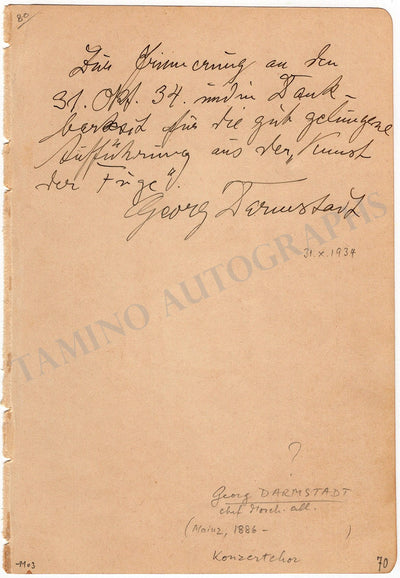 80
Zur Erinnerung an den
31. Okt. 34. und in Dank-
barkeit für die gut gelungene
Aufführung aus der „Kunst
der Fuge".
Georg Darmstadt
31.X.1934
TAMINO AUTOGRAPHS
?
Georg DARMSTADT
chef d'orch. all.
(Mainz, 1886 - )
Konzertchor
70